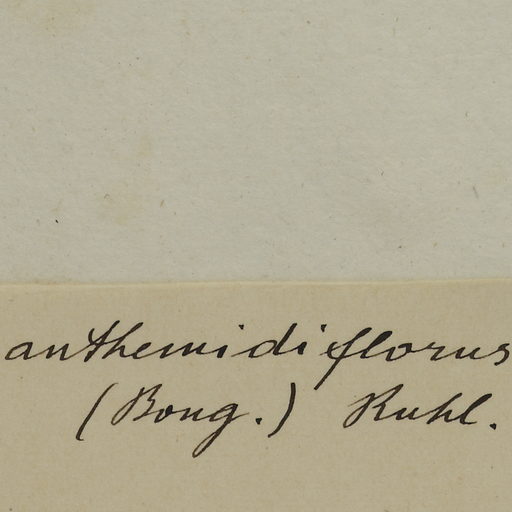 anthemidiflorus
(Bong.) Ruhl.